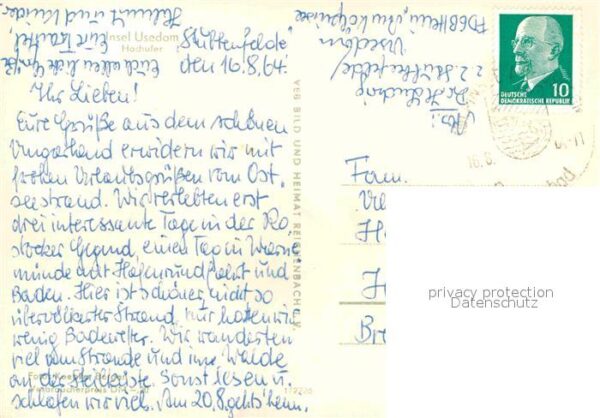 Insel Usedom
Hochufer
Stubbenfelde
den 16.8.64.
Ihr Lieben!
Eure Grüße aus dem schönen
Ungarland erwidern wir mit
frohen Urlaubsgrüßen vom Ost-
seestrand. Wir verlebten erst
drei interessante Tage in der Ro-
stocker Gegend, einen Tag in Warne-
münde mit Hafenrundfahrt und
Baden. Hier ist schöner, nicht so
übervölkerter Strand, nur hatten wir
wenig Badewetter. Wir wanderten
viel am Strande und im Walde
an der Steilküste. Sonst lesen u.
schlafen wir viel. Am 20.8. geht's heim.
Euch allen liebe Grüße
Eure
Helmut und Kinder
VEB BILD UND HEIMAT REICHENBACH I. V.
Abs.:
22 Stubbenfelde/
Usedom
FDGB Heim
DEUTSCHE
DEMOKRATISCHE REPUBLIK
10
Fam.
Br
privacy protection
Datenschutz